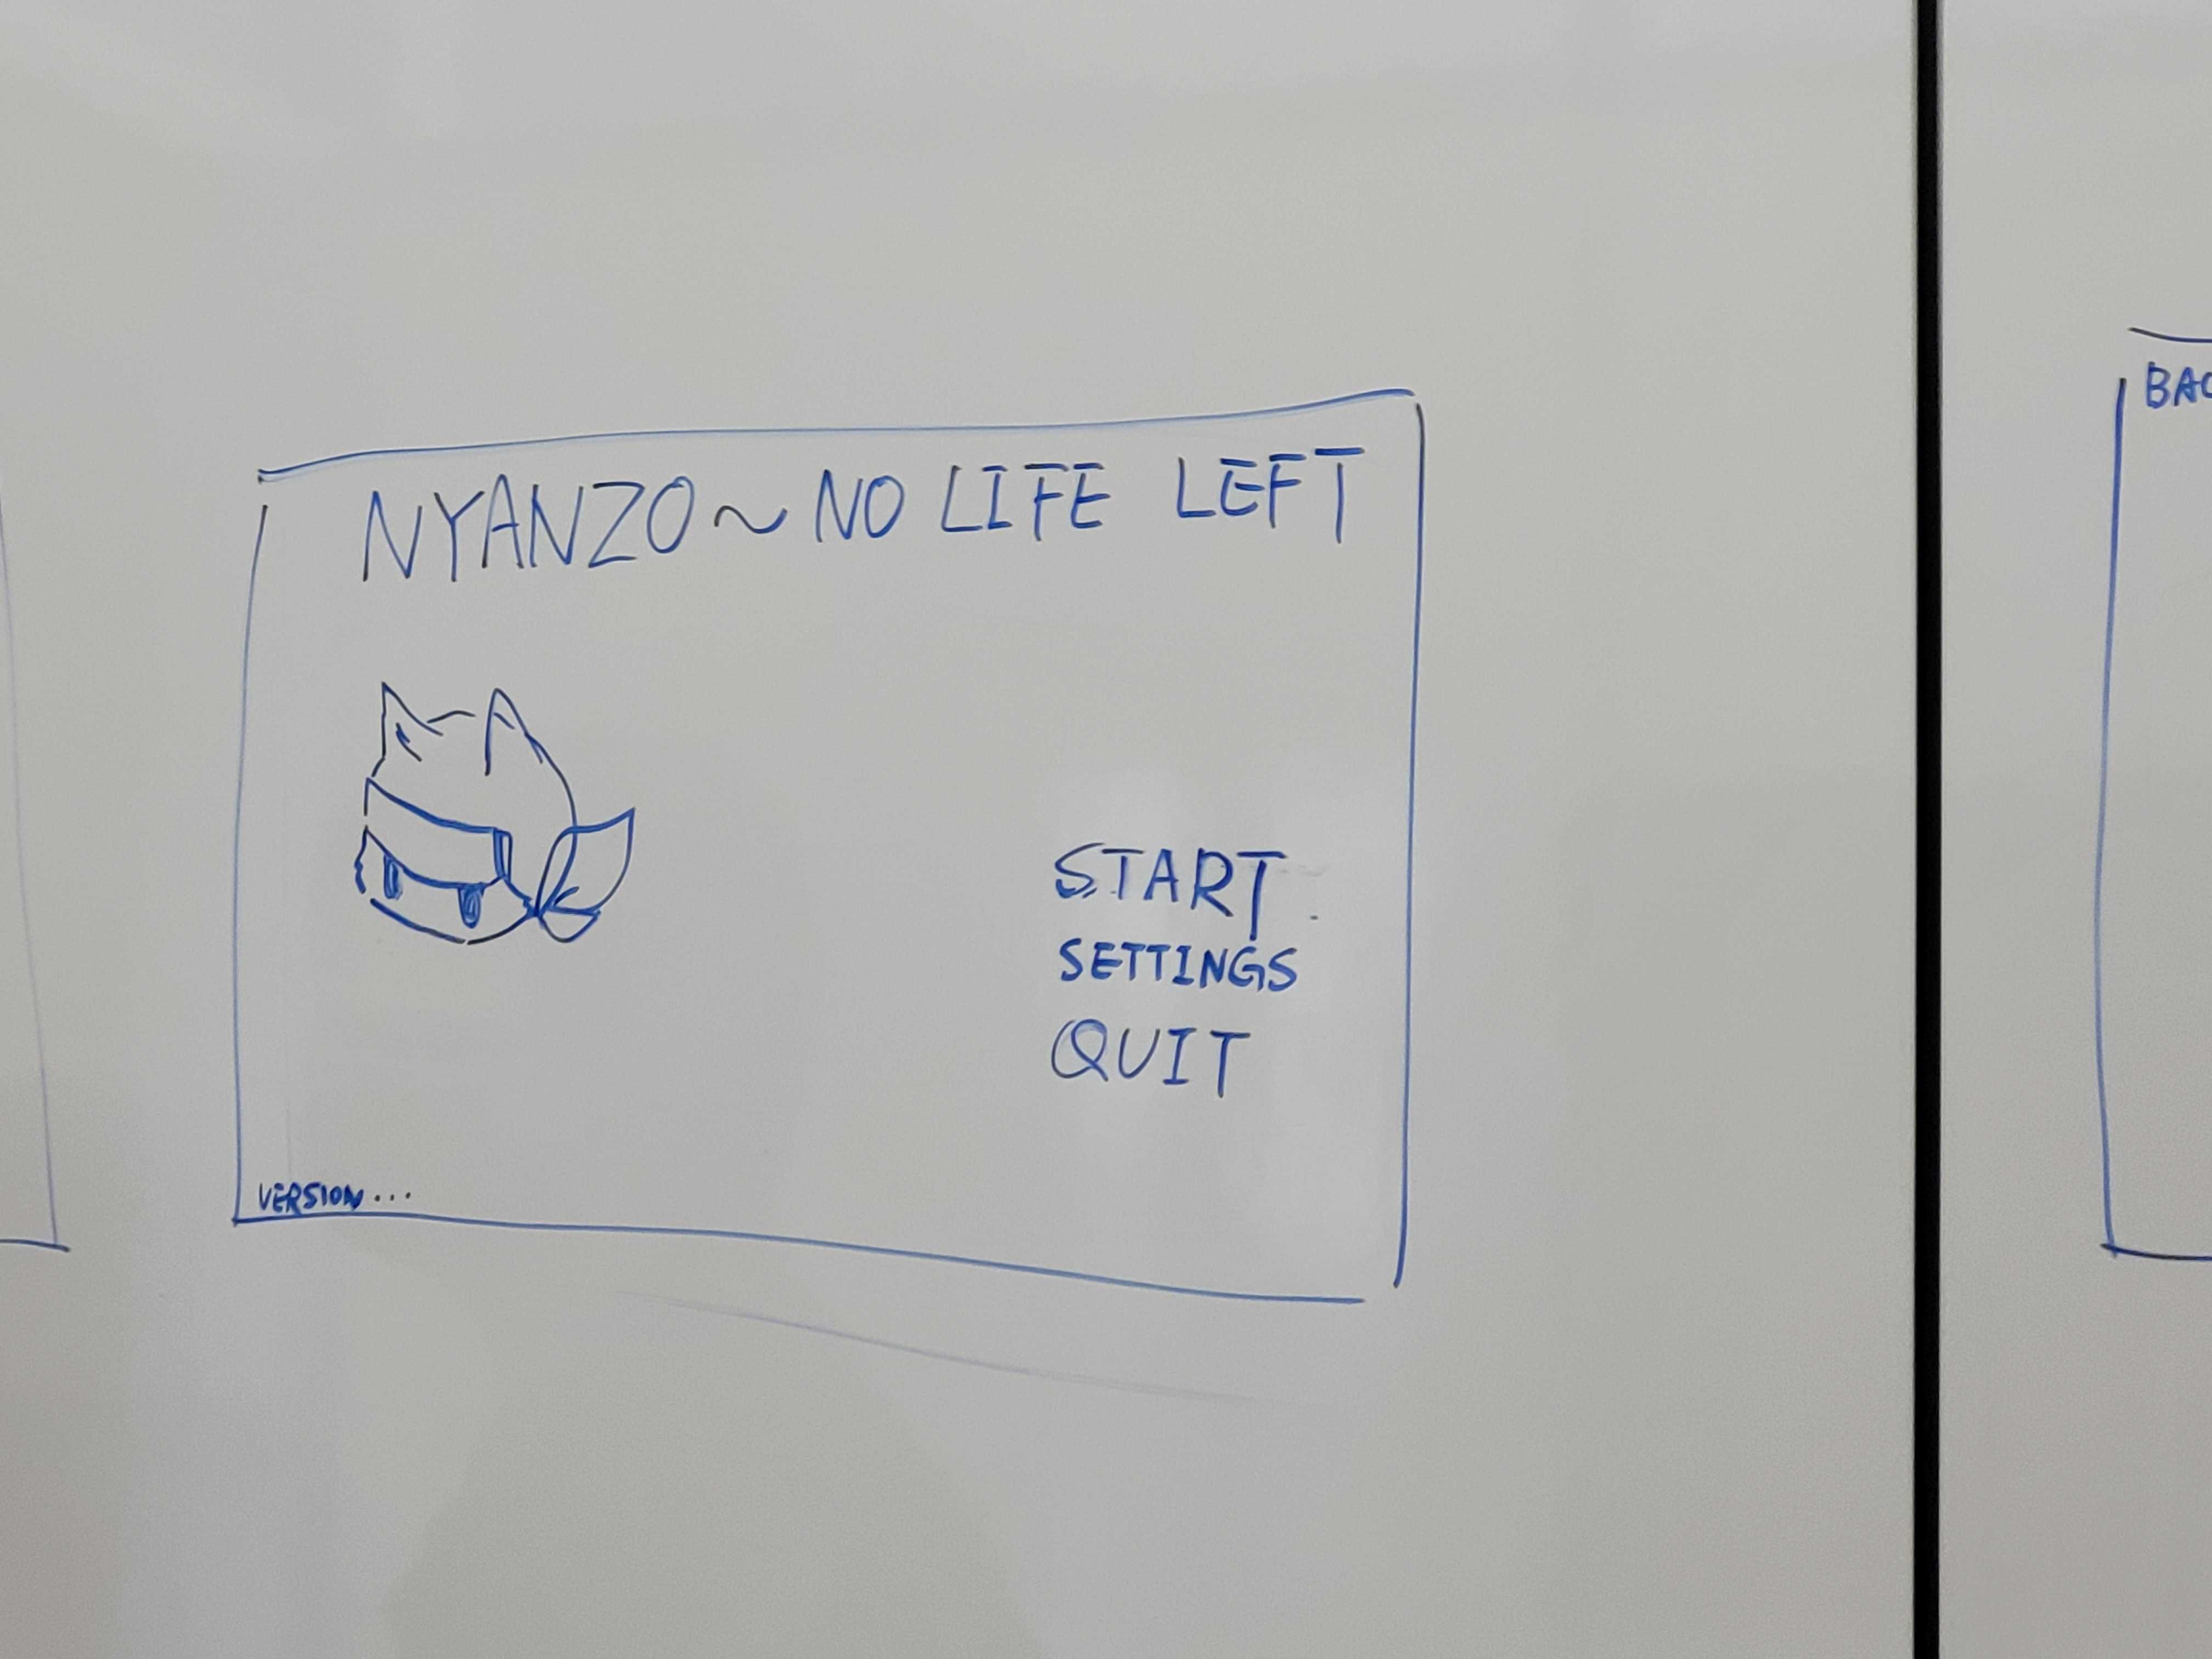 NYANZO ~ NO LIFE LEFT
START
SETTINGS
QUIT
VERSION...